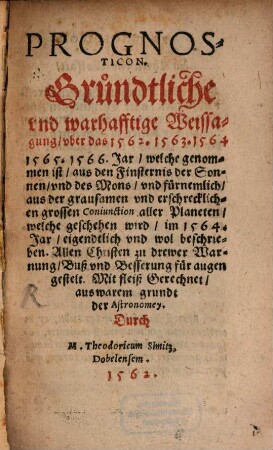 PROGNOS-
TICON.
Gründtliche
vnd warhafftige Weissa-
gung/ vber das 1562. 1563. 1564
1565. 1566. Jar / welche genom-
men ist / aus den Finsternis der Son-
nen/ vnd des Mons / vnd fürnemlich/
aus der grausamen vnd erschrecklich-
en grossen Coniunction aller Planeten /
welche geschehen wird / im 1564.
Jar / eigendtlich vnd wol beschrie-
ben. Allen Christen zu drewer War-
nung/ Buß vnd Besserung für augen
gestelt. Mit fleiß Gerechnet/
aus warem grundt
der Astronomey.
Durch
M. Theodoricum Simitz,
Dobelensem.
1562.